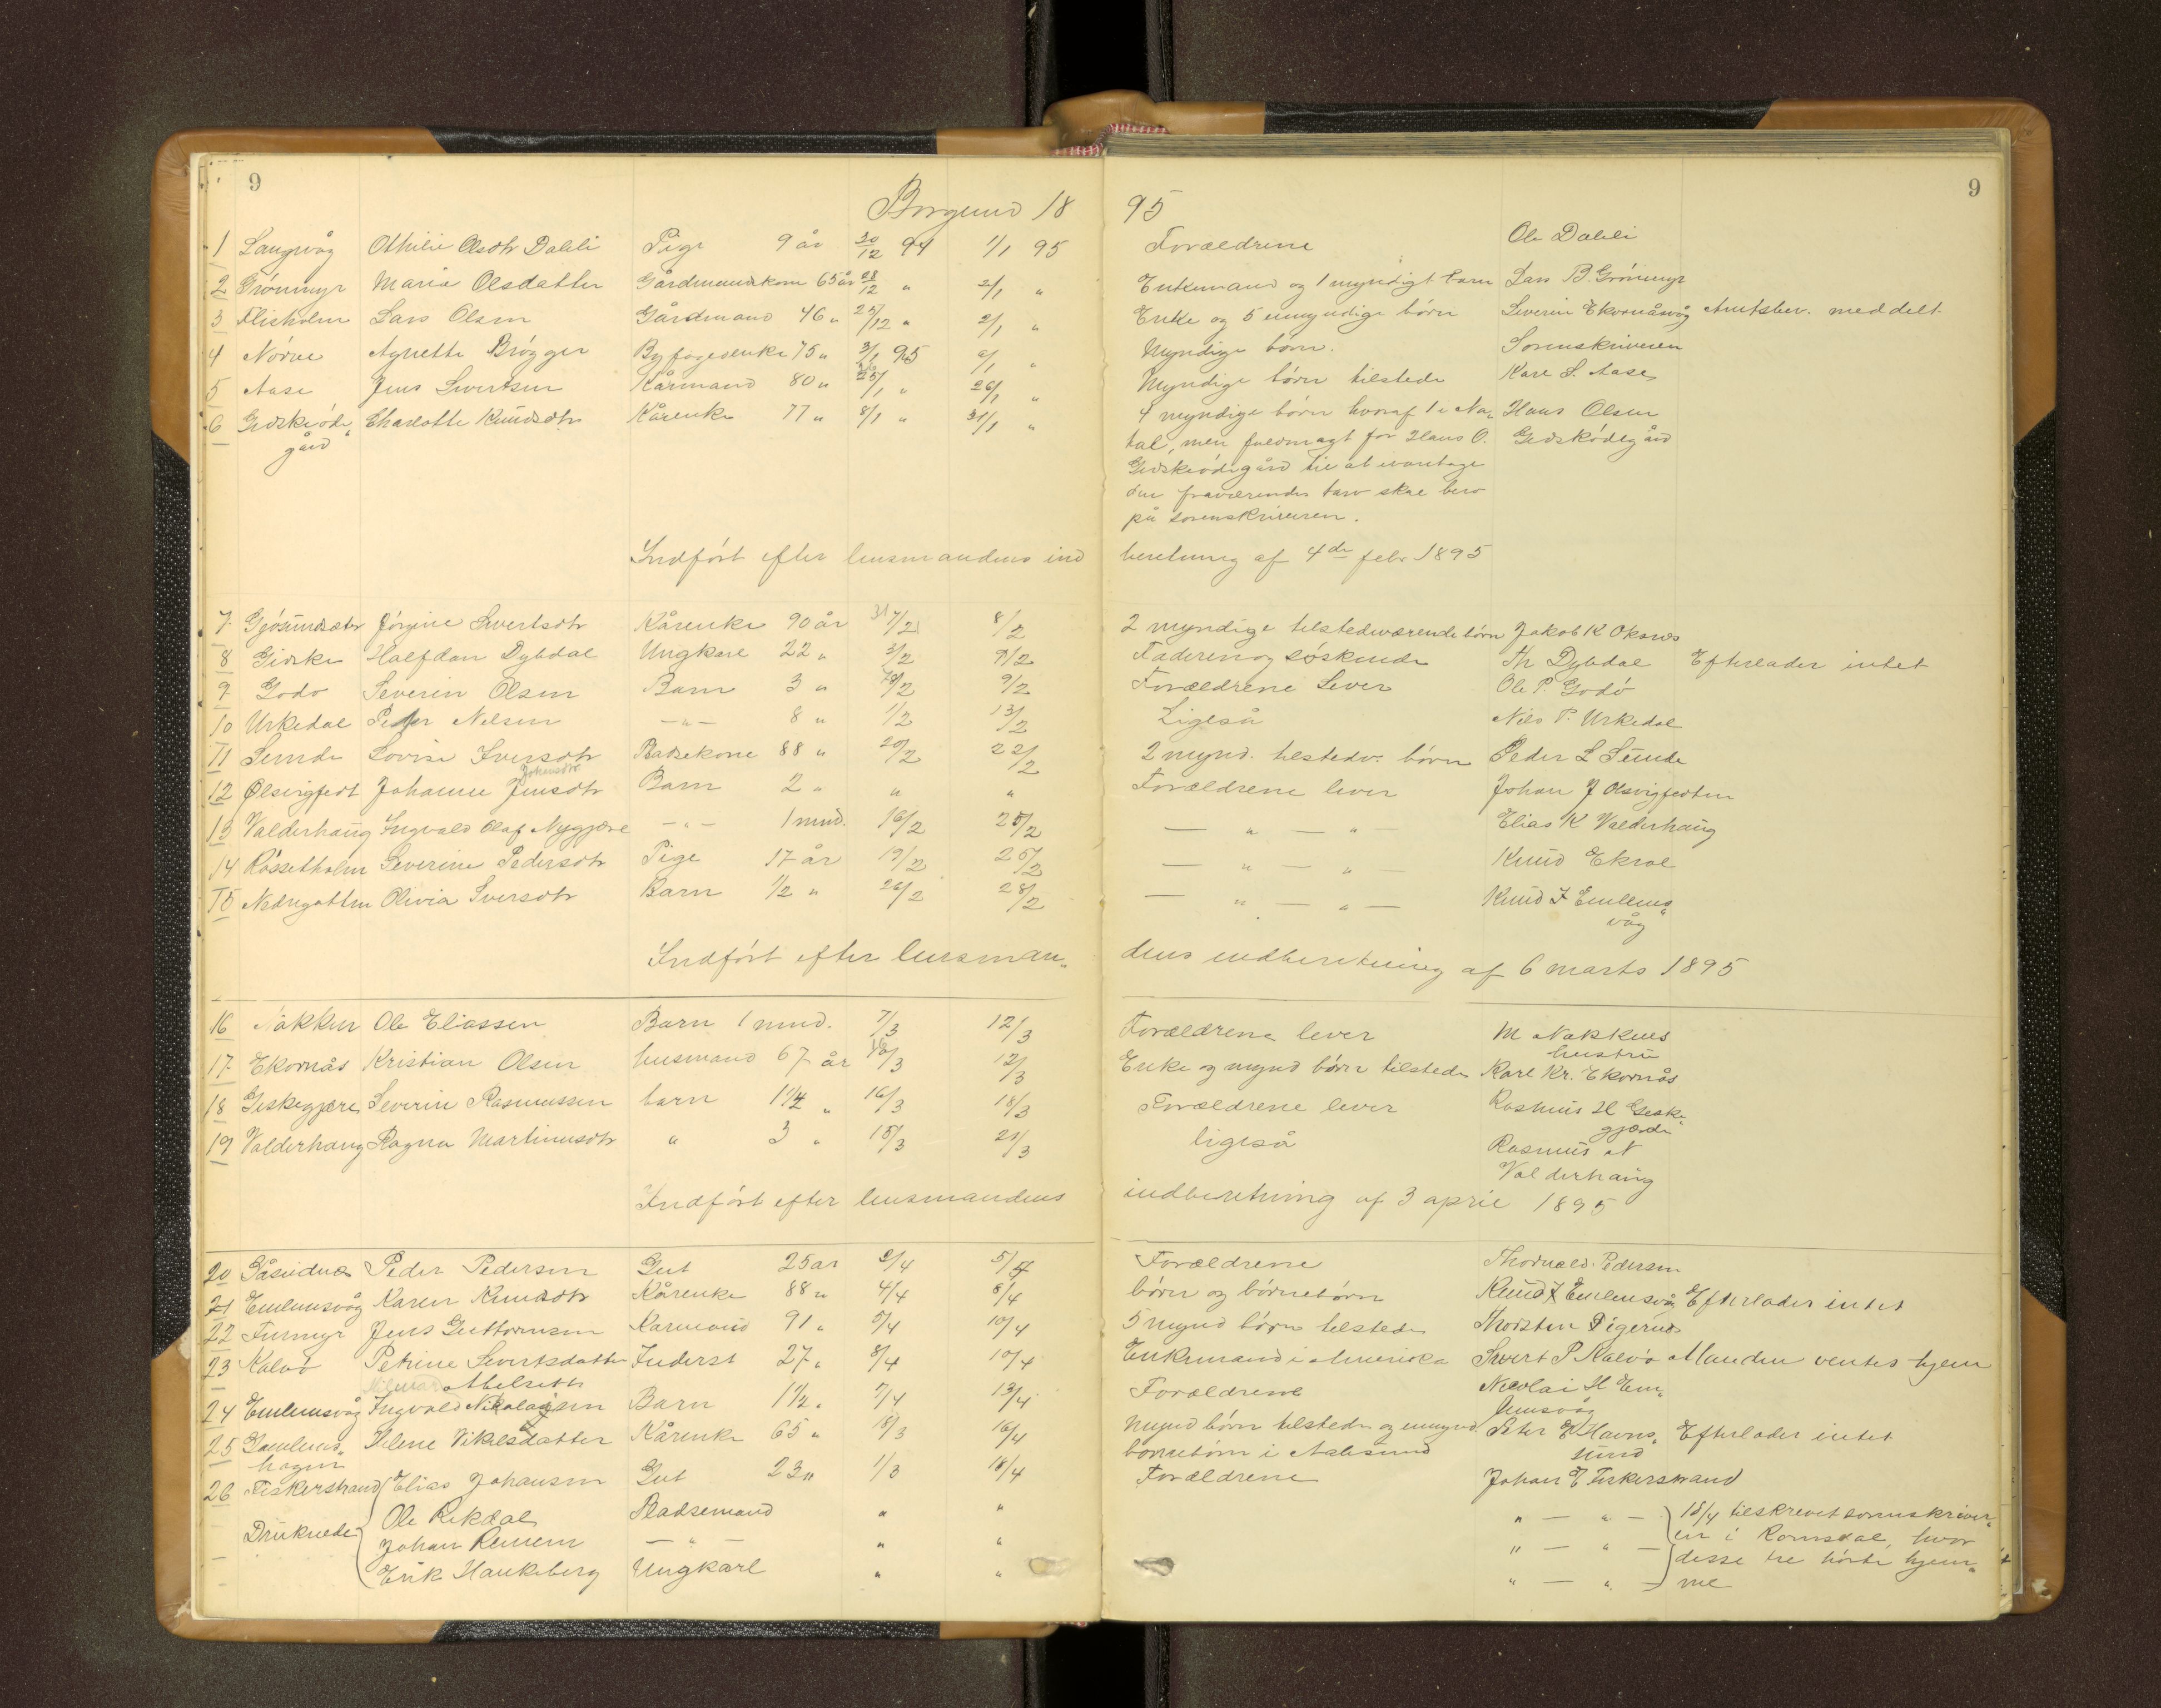 9
9
Borgund 18 95
1 Langvåg Othilie Olsdtr Dahli Pige 9 år 30/12 94 1/1 95 Forældrene Ole Dahli
2 Grönmyr Maria Olsdatter Gårdmandskone 65 år 28/12 " 2/1 " Enkemand og 1 myndigt barn Lars B. Grönmyr
3 Flisholm Lars Olsen Gårdmand 46 " 25/12 " 2/1 " Enke og 5 umyndige börn Severin Ekornåsvåg Amtsbev. meddelt
4 Nörve Agnette Brögger Byfogedenke 75 " 3/1 95 /1 " Myndige börn. Sorenskriveren
5 Aase Jens Sivertsen Kårmand 80 " 25/1 " 26/1 " Myndige börn tilstede Karl S. Aase
6 Gidskeöde„ Charlotte Knudsdtr Kårenke 77 " 8/1 " 31/1 " 4 myndige börn hvoraf 1 i Na„ Hans Olsen
gård tal, men fuldmagt for Hans O. Gidsködegård
Gidskeödegård til at ivaretage
den fraværendes tarv skal bero
på sorenskriveren.
Indfört efter lensmandens ind beretning af 4de febr 1895
7 Gjösundsæter Jörgine Sivertsdtr Kårenke 90 år 7/2 8/2 2 myndige tilstedeværende börn Jakob K Oksnes
8 Gidske Halfdan Dybdal Ungkarl 22 " 3/2 9/2 Faderen og söskende Th Dybdal Efterlader intet
9 Godö Severin Olsen Barn 3 " /2 9/2 Forældrene Lever Ole P. Godö
10 Urkedal Peder Nilsen —"— 8 " 1/2 13/2 Ligeså Nils P. Urkedal
11 Sunde Lovise Iversdtr Pladsekone 88 " 20/2 22/2 2 mynd. tilstedv. börn Peder L Sunde
Johansdtr
12 Ölsvigfedt Johanne Jensdtr Barn 2 " " " Forældrene lever Johan J Olsvigfedten
13 Valderhaug Ingvald Olaf Nygjære —"— 1 mnd. 16/2 25/2 — " — " — Elias K Valderhaug
14 Rössetholm Severine Pedersdtr Pige 17 år 19/2 25/2 — " — " — Knud Ekroe
15 Nedregotten Olivia Iversdtr Barn 1/2 " 26/2 28/2 — " — " — Knud I Emlems„
våg
Indfört efter lensman„ dens indberetning af 6 marts 1895
16 Nakken Ole Eliassen Barn 1 mnd. 7/3 12/3 Forældrene lever M Nakkens
hustru
17 Ekornås Kristian Olsen husmand 67 år /3 12/3 Enke og mynd börn tilstede Karl Kr. Ekornås
18 Giskegjære Severin Rasmussen barn 1 1/4 " 16/3 18/3 Forældrene lever Rasmus H Giske„
gjærde
19 Valderhaug Ragna Martinusdtr " 3 " 15/3 21/3 ligeså Rasmus N
Valderhaug
Indfört efter lensmandens indberetning af 3 april 1895
20 Gåseidnes Peder Pedersen Gut 25 år 2/4 5/4 Forældrene Thorvald Pedersen
21 Emlemsvåg Karen Knudsdtr Kårenke 88 " 4/4 8/4 börn og börnebörn Knud I Emlemsvåg Efterlader intet
22 Furmyr Jens Guttormsen Kårmand 91 " 5/4 10/4 5 mynd börn tilstede Thorsten Digernes
23 Kalvö Petrine Sivertsdatter Inderst 27 " 8/4 10/4 Enkemand i Amerika Sivert P Kalvö Manden ventes hjem
Abelseth
24 Emlemsvåg Ingvald Nikolaisen Barn 1 1/2 " 7/4 13/4 Forældrene Nicolai H Em„
lemsvåg
25 Gamlems„ Helene Vikelsdatter Kårenke 65 " 18/3 16/4 Mynd börn tilstede og umynd Peter E Havns„ Efterlader intet
hagen börnebörn i Aalesund sund
26 Fiskerstrand Elias Johansen Gut 23 " 1/3 18/4 Forældrene Johan E Fiskerstrand
Druknede Ole Rekdal Pladsemand " " " — " — 18/4 tilskrevet sorenskriver„
Johan Remem — " — " " " — " — en i Romsdal, hvor
Erik Haukeberg Ungkarl " " " — " — desse tre hörte hjem„
me